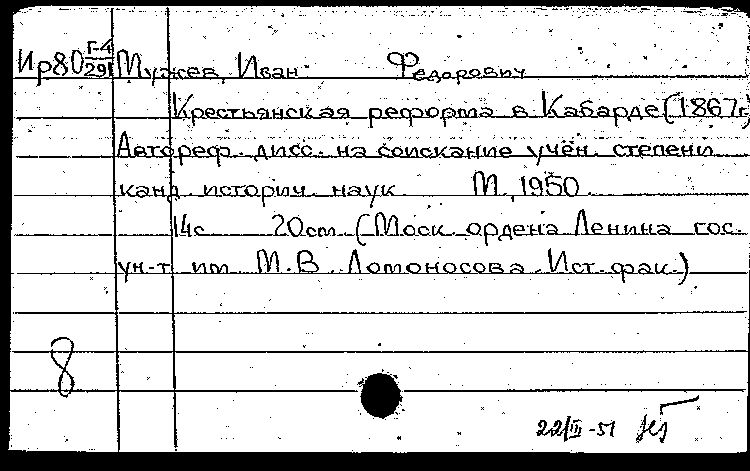 Ир80 Г-4/291 Мужев, Иван Федорович
Крестьянская реформа в Кабарде (1867г.)
Автореф. дисс. на соискание учён. степени
канд. историч. наук М., 1950.
14с 20см. (Моск. ордена Ленина гос.
ун-т им. М.В. Ломоносова. Ист. фак.)
8
22/III-51